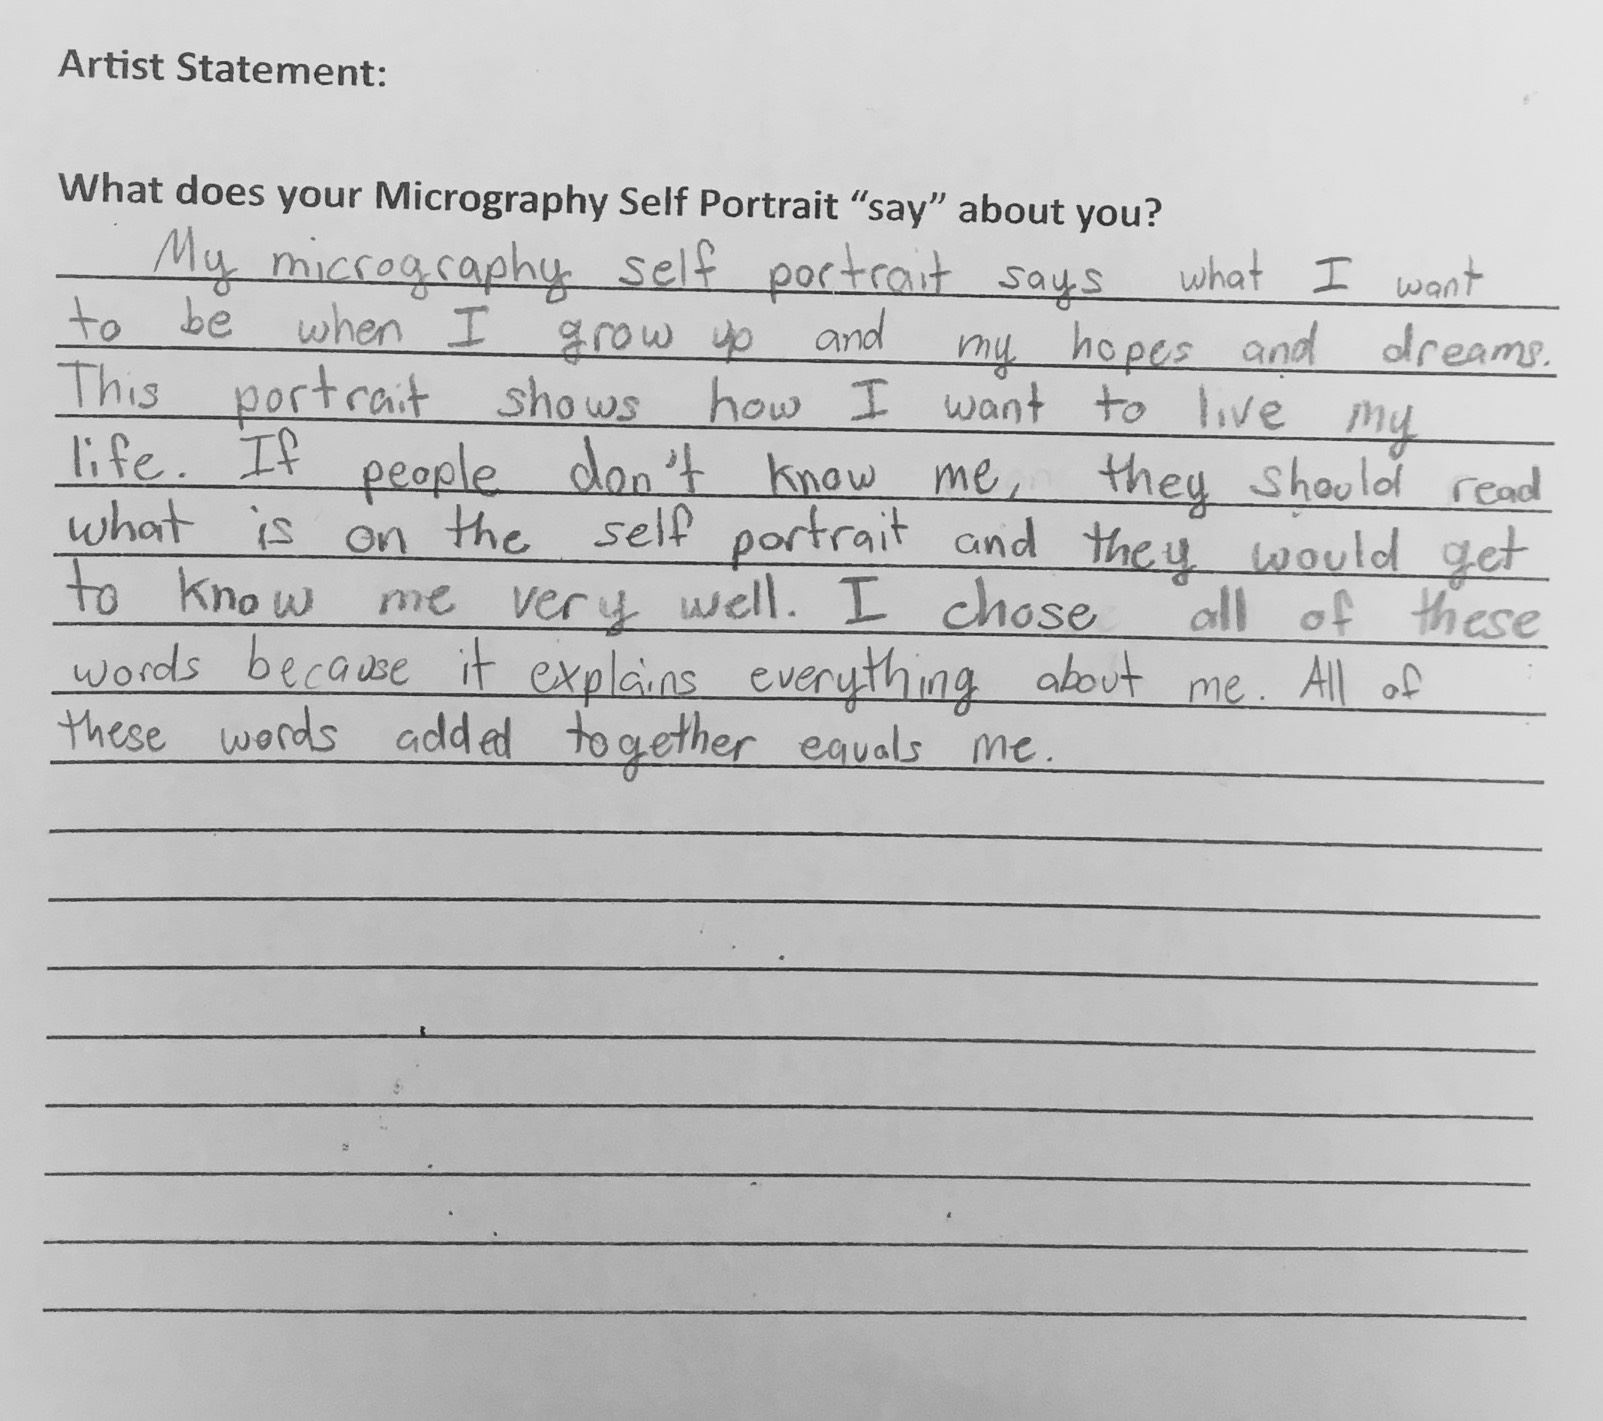 Artist Statement:
What does your Micrography Self Portrait “say” about you?
My micrography self portrait says what I want
to be when I grow up and my hopes and dreams.
This portrait shows how I want to live my
life. If people don't know me, they should read
what is on the self portrait and they would get
to know me very well. I chose all of these
words because it explains everything about me. All of
these words added together equals me.